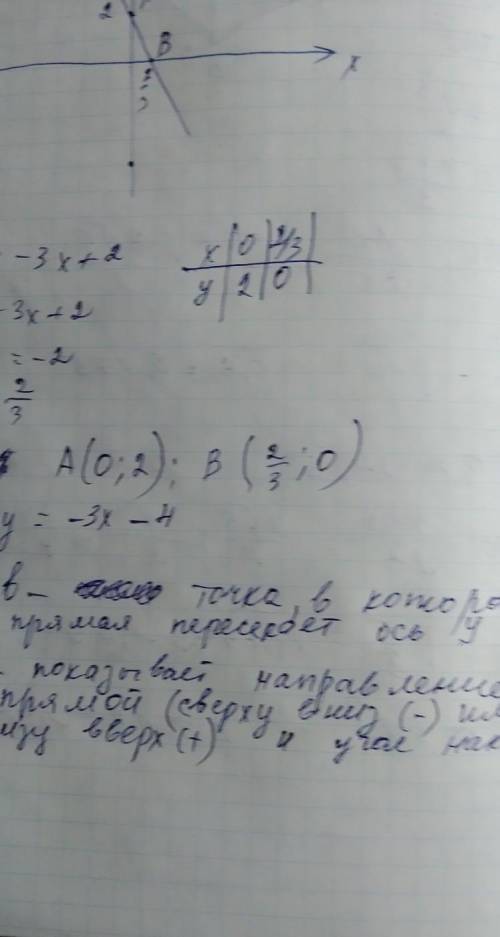 2
B
2/3
x
-3x+2
x | 0 | 2/3 |
y | 2 | 0 |
-3x+2
= -2
2/3
A(0;2); B(2/3;0)
y = -3x - 4
в - точка, в которо
прямая пересекает ось y
показывает направление
прямой (сверху вниз (-) ил
изу вверх (+) и угол нак